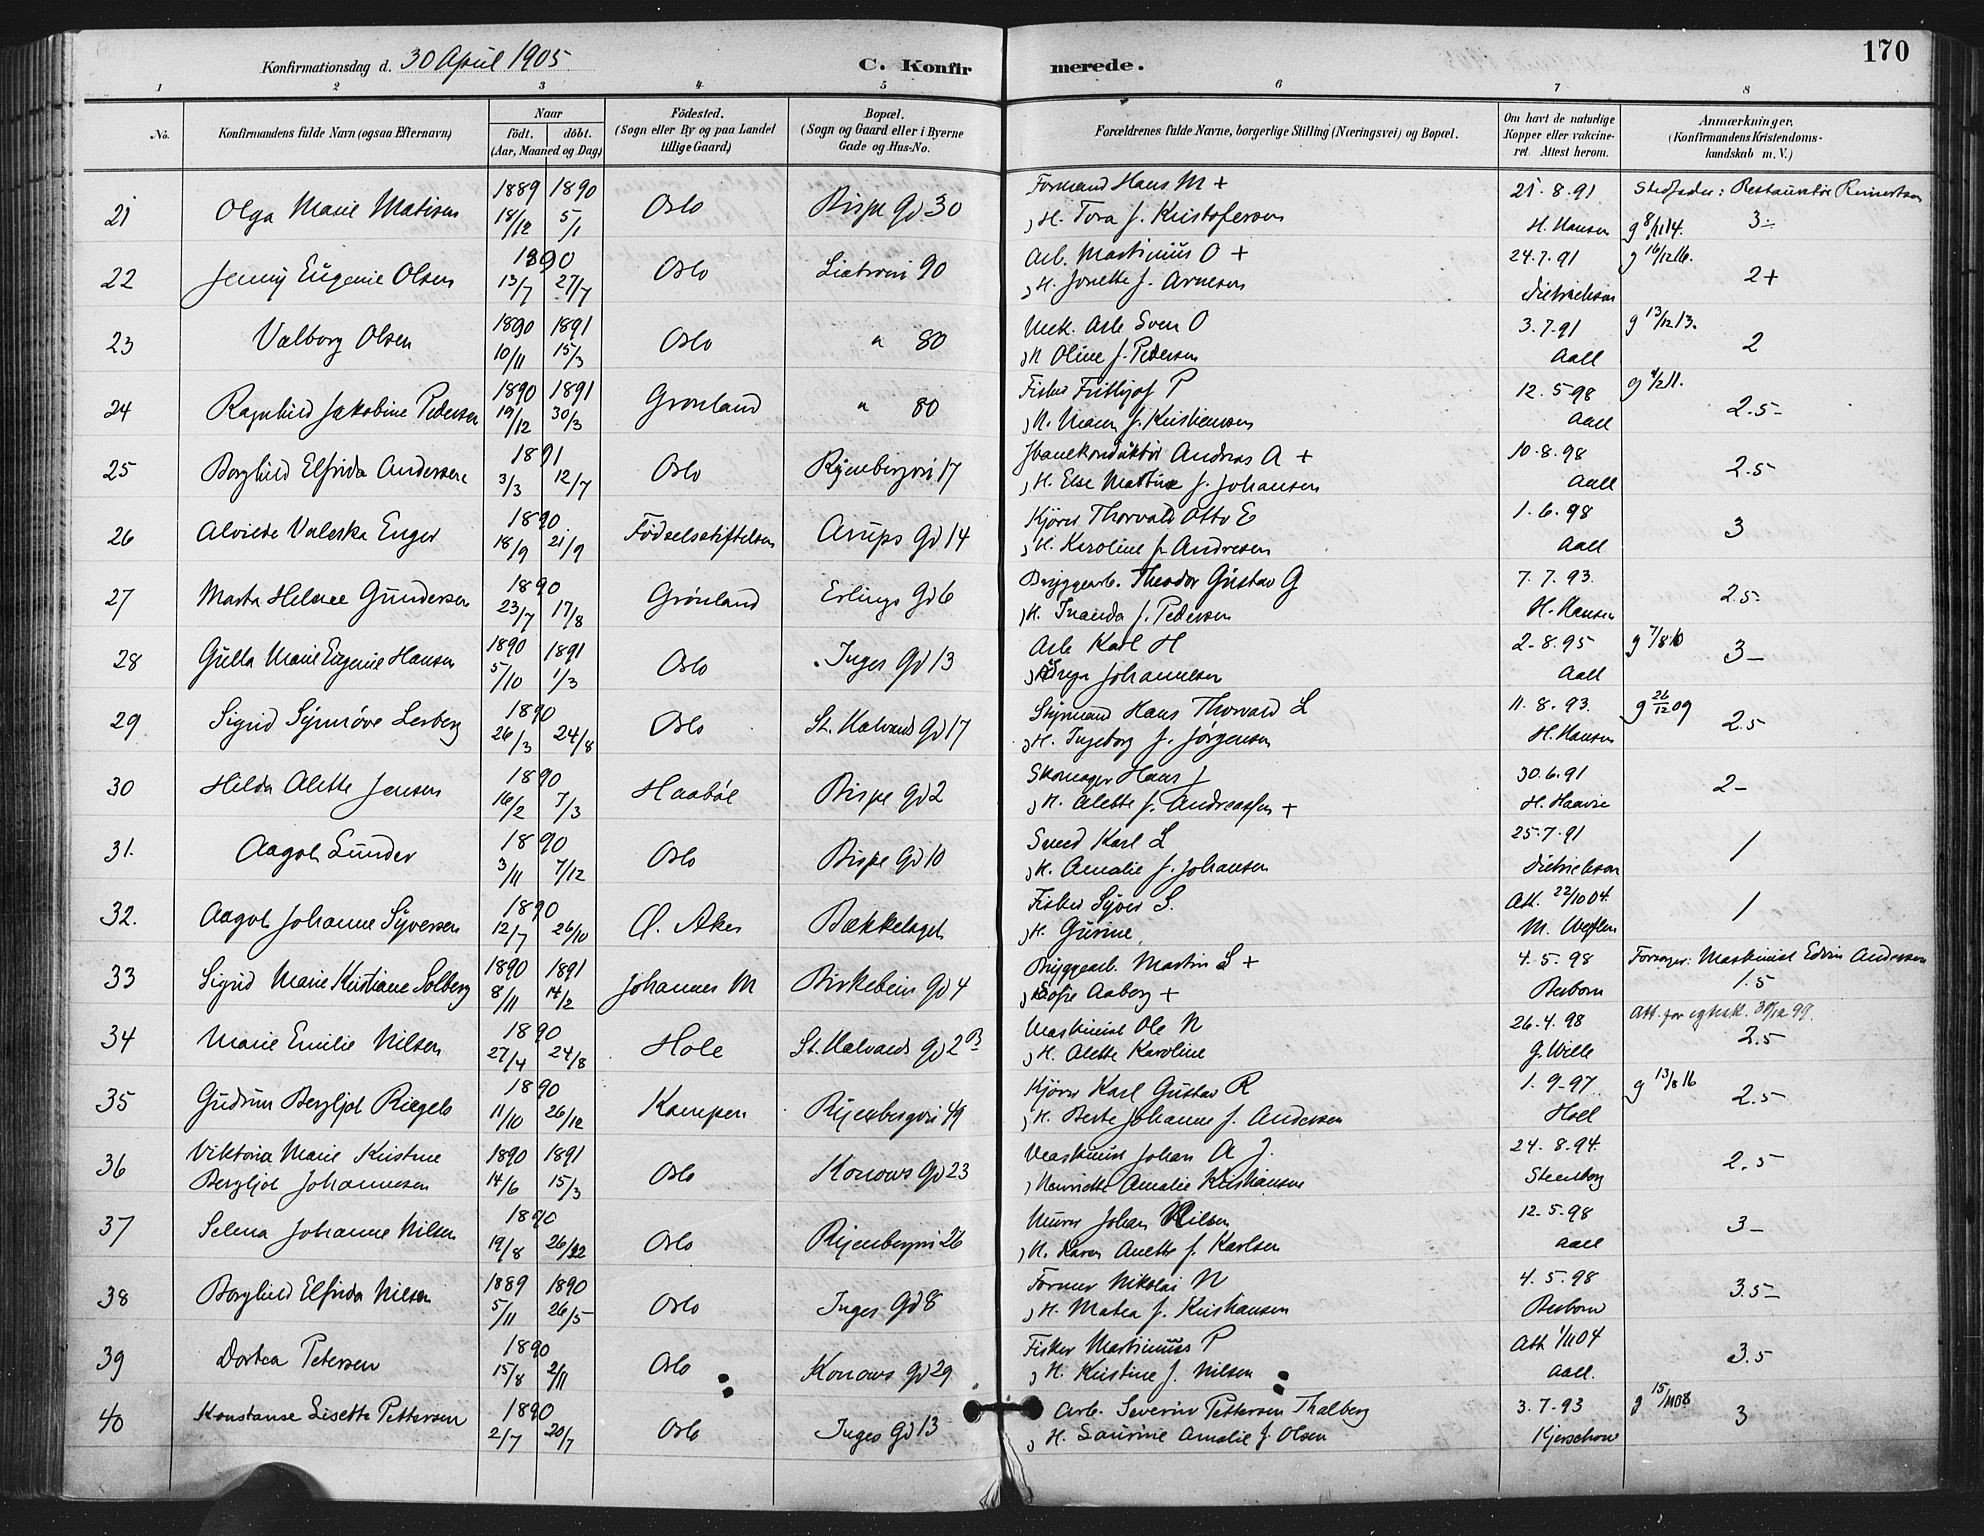 170
Konfirmationsdag d. 30 April 1905
C. Konfirmerede.
1 2 3 4 5 6 7 8
No. Konfirmandens fulde Navn (ogsaa Efternavn) Naar født. døbt. (Aar, Maaned og Dag) Fødested. (Sogn eller By og paa Landet tillige Gaard) Bopæl. (Sogn og Gaard eller i Byerne Gade og Hus-No. Forældrenes fulde Navne, borgerlige Stilling (Næringsvei) og Bopæl. Om havt de naturlige Kopper eller vaccineret. Attest herom. Anmærkninger. (Konfirmandens Kristendomskundskab m. V.)
21 Olga Marie Matisen 1889 18/12 1890 5/1 Oslo Bispe Gd 30 Formand Hans M +
H. Tora f. Kristofersen 21.8.91 H. Hansen Stedfader: Restauratør g 8/11 14. 3-
22 Jenny Eugenie Olsen 1890 13/7 27/7 Oslo 90 Arb. Martinius O +
H. Jonette f. Arnesen 24.7.91 Dietrichson g 16/12 16. 2+
23 Valborg Olsen 1890 10/11 1891 15/3 Oslo " 80 Mek. Arb Sven O
H Oline f. Pedersen 3.7.91 Aall g 13/12 13. 2
24 Ragnhild Jakobine Pedersen 1890 19/12 1891 30/3 Grønland " 80 Fisker Frithjof P
H. Maren f. Kristiansen 12.5-98 Aall 2.5-
25 Borghild Elfrida Andersen 1891 3/3 12/7 Oslo Ryenbergvei 17 Jbanekonduktør Andreas A +
H. Else Martine f. Johansen 10.8.98 Aall 2.5
26 Alvilde Valeska Enger 1890 18/9 21/9 Fødselsstiftelsen Arups Gd 14 Kjører Thorvald Otto E
H. Karoline f. Andresen 1.6.98 Aall 3
27 Marta Helene Gundersen 1890 23/7 17/8 Grønland Erlings Gd 6 Bryggearb. Theodor Gustav G
H. Inanda f. Pedersen 7.7.93. H. Hansen 2.5-
28 Gulla Marie Eugenie Hansen 1890 5/10 1891 1/3 Oslo Inges Gd 13 Arb Karl H
Inga Johannesen 2-8.95 Aall g 7/8 10 3-
29 Sigrid Synnøve Lerberg 1890 26/3 24/8 Oslo St. Halvards Gd 17 Styrmand Hans Thorvald L
H. Ingeborg f. Jørgensen 11.8.93. H. Hansen g 26/12 09 2.5
30 Hilda Alette Jensen 1890 16/2 7/3 Haabøl Bispe Gd 2 Skomager Hans J
H. Alette f. Andreassen + 30.6.91 H. Haavie 2-
31. Aagot Lunder 1890 3/11 7/12 Oslo Bispe Gd 10 Smed Karl L
H. Amalie f. Johansen 25.7.91 Dietrichson 1
32. Aagot Johanne Syversen 1890 12/7 26/10 Ø. Aker Bækkelaget Fisker Syver S.
H. Gurine Att. 22/10 04. 1
33 Sigrid Marie Kristiane Solberg 1890 8/11 1891 14/2 Johannes M Birkebein Gd 4 Bryggearb. Martin S +
Sofie Aaberg + 4.5.98 Forsørger: Maskinist Edvin Andersen 1.5
34 Marie Emilie Nilsen 1890 27/4 24/8 Hole St. Halvards Gd 2B Maskinist Ole N
H. Alette Karoline 26.4.98 G. Wille 2.5
35 Gudrun Bergljot Riegels 1890 11/10 26/12 Kampen Ryenbergvei 49 Kjører Karl Gustav R
H. Berte Johanne f. Andersen 1.9-97 Hoel g 13/8 16 2.5
36 Viktoria Marie Kristine
Bergljot Johannesen 1890 14/6 1891 15/3 Oslo Konows Gd 23 Maskinist Johan A J.
Henriette Amalie Kristiansen 24.8.94. Steenberg 2.5
37 Selma Johanne Nilsen 1890 19/8 26/12 Oslo Ryenbergvei 26 Murer Johan Nilsen
H. Karen Anette f. Karlsen 12.5-98 Aall 3-
38 Borghild Elfrida Nilsen 1889 5/11 1890 26/5 Oslo Inges Gd 8 Former Nikolai N
H. Matea f. Kristiansen 4.5.98 3.5-
39 Dortea Petersen 1890 15/8 2/11 Oslo Konows Gd 29 Fisker Martinius P
H. Kristine f. Nilsen Att 1/11 04 Aall. 3.5
40 Konstanse Lisette Pettersen 1890 2/7 20/7 Oslo Inges Gd 13 Arb. Severin Pettersen Thalberg
H. Laurine Amalie f. Olsen 3.7.93 Kjerschow g 15/11 08 3